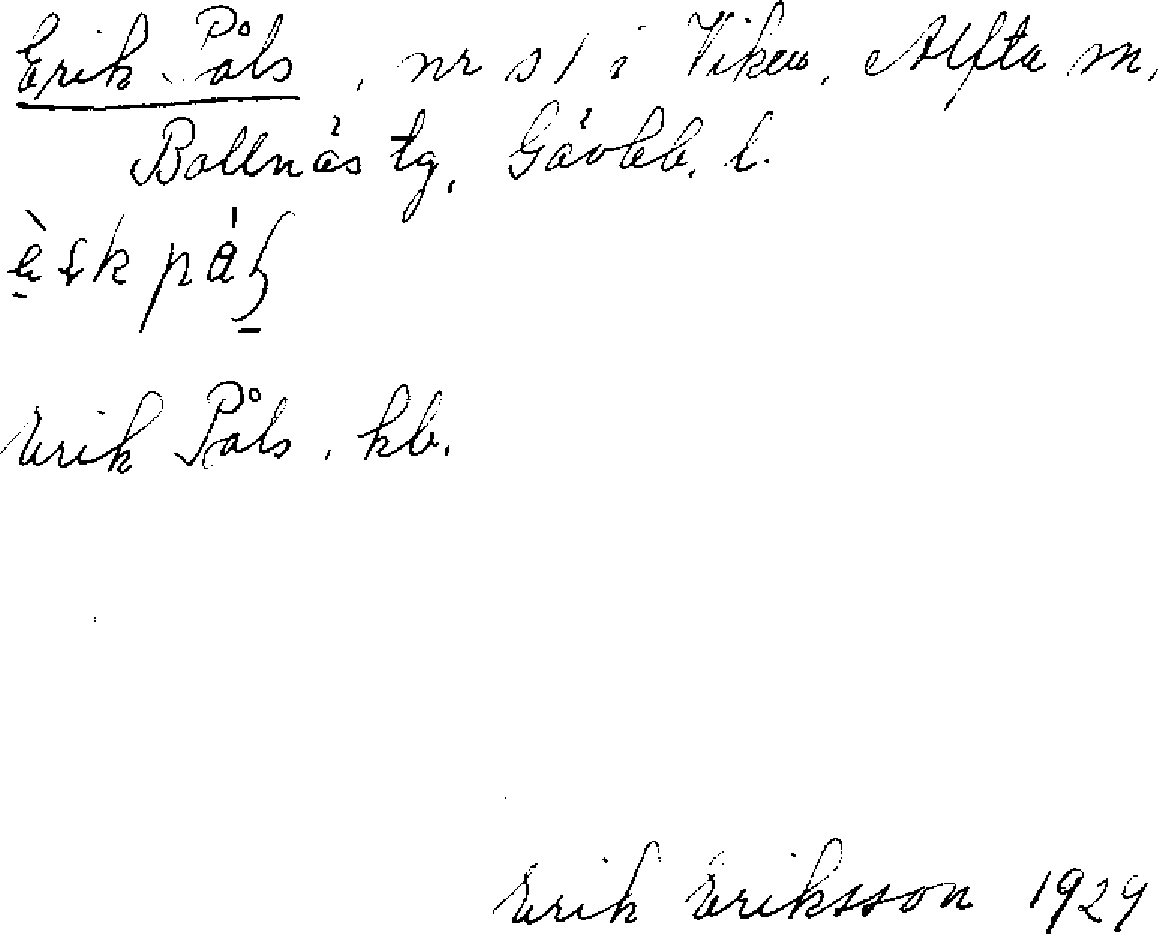 Erik Påls, nr 51 i Viken, Alfta sn,
Bollnäs tg, Gävleb. l.
Erik Påls, kb.
Erik Eriksson 1929